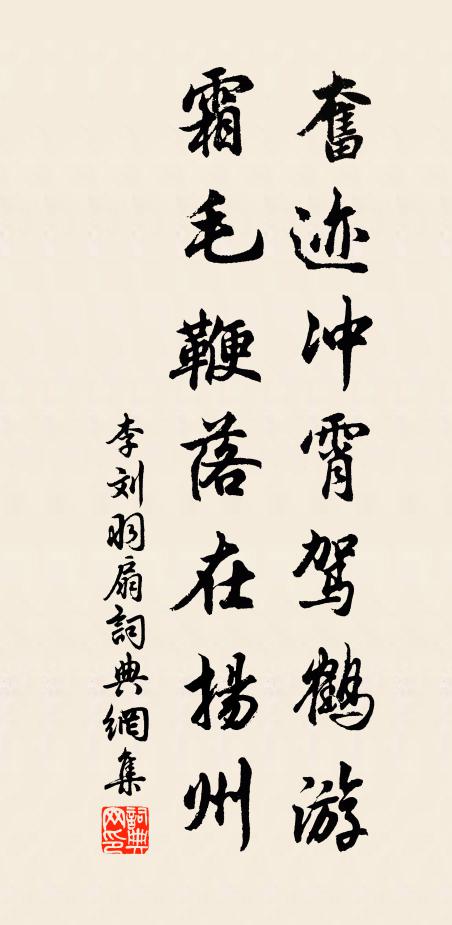 奮迹冲霄駕鶴游
霜毛鞭落在揚州
李刘羽扇詞典網集
詞典网印